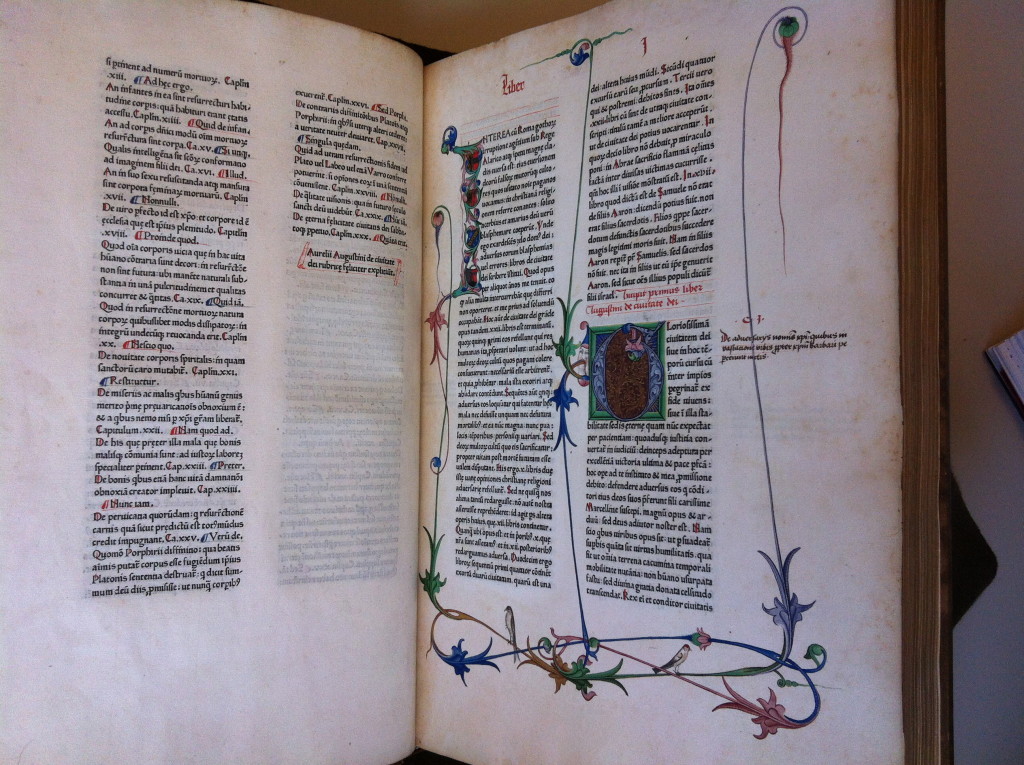 si pertinent ad numerū mortuoꝝ. Caplm
.xiii. Ad hec ergo.
An infantes in ea sint resurrecturi habi
tudine corpis: quā habituri erant etatis
accessu. Caplm.xiiii. Quid de infan.
An ad corpus dñici modū oīm mortuoꝝ
resurrectura sint corpa. Ca.xv. Si
Qualis intelligēda sit sctōꝝ conformatio
ad imaginem filii dei. Ca.xvi. Illud.
An in suo sexu resuscitanda atꝗ mansura
sint corpora feminaꝝ mortuarū. Caplm
.xvii. Nonnulli.
De uiro pfecto id est xpō: et corpore id ē
ecclesia que est ipius plenitudo. Caplm
.xviii. Proinde quod.
Quod oīa corporis uicia que in hac uita
huāno cōtraria sunt decori: in resurrectōe
non sint futura: ubi manēte naturali sub
stantia in unā pulcritudinem et qualitas
concurret & q̄ntitas. Ca.xix. Quid iā.
Quod in resurrectōne mortuoꝝ natura
corpoꝝ quibuslibet modis dissipatoꝝ: in
integrū undecūꝗ reuocanda erit. Caplm
.xx.
De nouitate corporis spiritalis: in quam
sanctorū caro mutabit. Caplm.xxi.
Restituetur.
De miseriis ac malis qbus hūanū genus
merito pme preuaricatiōis obnoxium ē:
& a qbus nemo nisi p xpi grām liberat.
Capitulum.xxii. Nam quod ad.
De his que preter illa mala que bonis
malisꝗ cōmunia sunt: ad iustoꝝ laborē
specialiter ptinent. Cap.xxiii. Preter.
De bonis qbus etiā hanc uitā damnatiōi
obnoxiā creator impleuit. Cap.xxiiii.
Nunc iam.
De peruicatia quorūdam: ꝗ resurrectōnē
carnis quā sicut predictū est tot mūdus
credit impugnant. Ca.xxv. Verū de.
Quomō Porphirii diffinitio: qua beatis
aīmis putat corpus esse fugiēdum ipius
Platonis sententia destruat: ꝗ dicit sum-
mum deū diis pmisisse: ut nunꝗ corpib
exuerent. Caplm.xxvi. Sed Porph.
De contrariis diffinitōibus Platonis atꝗ
Porphirii: in qbus si uterꝗ alteri cederet
a ueritate neuter deuiaret. Cap.xxvii.
Singula quedam.
Quid ad ueram resurrectōnis fidem uel
Plato uel Labeo uel etiā Varro conferre
potuerint: si opiniones eoꝝ ī unā sententiā
conuenissent. Caplm.xxviii. Nonulli.
De qlitate uisionis: qua in futuro seculo
sancti deū uidebūt. Ca.xxix.
De eterna felicitate ciuitatis dei: sabba
toꝗ ppetuo. Caplm.xxx. Quāta erit.
Aurelii Augustini de ciuitate
dei rubrice feliciter expliciūt.
Liber I
INTEREA cū Roma gothoꝝ
irruptione agētium sub Rege
Alarico atꝗ impetu magne cla-
dis euersa est:
deoꝝ falsoꝝ multorūꝗ culto-
res quos usitato noīe paganos
uocamus in christianā religi-
onem referre conantes: solito
acerbius et amarius deū uerū
blasphemare ceperūt. Vnde
ego exardescēs zelo dom⁹ dei:
aduersus eorum blasphemias
uel errores libros de ciuitate
dei scribere īstitui. Quod opus
per aliquot ānos me tenuit. eo
ꝗ alia multa intercurrebāt que differri
non oporteret. et me prius ad soluendū
occupabant. Hoc aūt de ciuitate dei grāde
opus tandem.xxii. libris est terminatum.
quorū quinꝗ primi eos refellunt qui res
humanas ita pspari uolunt: ut ad hoc
multoꝝ deoꝝ cultū quos pagani colere
consueuerunt necessariū esse arbitrentur.
et quia phibētur mala ista exoriri atꝗ
abūdare contēdunt. Sequētes aūt quinꝗ
aduersus eos loquūtur qui fatentur hec
mala nec defuisse unquam nec defutura
mortalib⁹. et ea nūc magna: nunc pua:
locis tēporibus personisꝗ uariari. Sed
deoꝝ multoꝝ cultū quo eis sacrificatur:
propter uitam post mortē futuram esse
utilem disputant. His ergo.x. libris due
iste uane opiniones christiane religioni
aduersarie refellunt. Sed ne quisꝗ nos
aliena tantū redarguisse: nō aūt nostra
asseruisse reprehēderet: id agit ps altera
operis huius. que.xii. libris continetur.
Quāꝗ ubi opus est et in priorib⁹.x. que
nr̄a sunt asseramus: et in.xii. posteriorib⁹
redarguamus aduersa. Duodecim ergo
libroꝝ sequentiū primi quatuor cōtinēt
exortū duarū ciuitatum. quarū est una
dei: altera huius mūdi. Secūdi quatuor
excursū earū seu pcursum. Tercii uero
qui & postremi: debitos fines. Ita omēs
xxii. libri cū sint de utraꝗ ciuitate con-
scripti: titulū tamē a meliore acceperūt.
ut de ciuitate dei potius uocarentur. In
quoꝝ decio libro nō debuit p miraculo
poni: in Abrae sacrificio flāmmā celitus
factā inter diuisas uictimas cucurrisse.
qm̄ hoc illi ī uisiōe mōstratū est. In.xvii.
libro quod dictū est de Samuele nō erat
de filiis Aaron: dicendū potius fuit. non
erat filius sacerdotis. Filios quippe sacer-
dotum defunctis sacerdotibus succedere
magis legitimi moris fuit. Nam in filiis
Aaron reperit pr̄ Samuelis. sed sacerdos
nō fuit. nec ita in filiis ut eū ipe genuerit
Aaron. sed sicut oēs illius populi dicūtˢ
filii israel. Incipit primus liber
Augustini de ciuitate dei.
Gloriosissimā
ciuitatem dei
siue in hoc tē-
porū cursu cū
inter impios
peregrinat ex
fide uiuens:
siue ī illa sta-
bilitate sedis eterne quam nūc expectat
per pacientiam: quoadusꝗ iusticia con-
uertat in iudiciū: deinceps adeptura per
excellētiā uictoria ultima & pace pfcā:
hoc ope ad te instituto & mea pmissione
debito: defendere aduersus eos q condi-
tori eius deos suos pferunt fili carissime
Marcelline suscepi. magnū opus & ar-
duū: sed deus adiutor noster est. Nam
scio qbus uiribus opus sit: ut psuadeat
supbis quāta sit uirtus humilitatis. qua
fit ut oīnia terrena cacumina temporali
mobilitate nutātia: non hūano usurpata
fastu: sed diuina gratia donata celsitudo
transcendat. Rex eī et conditor ciuitatis
C. I.
De aduersariis nominis xpi: quibus in
uastatione urbis propter xpm barbari pe
percerunt